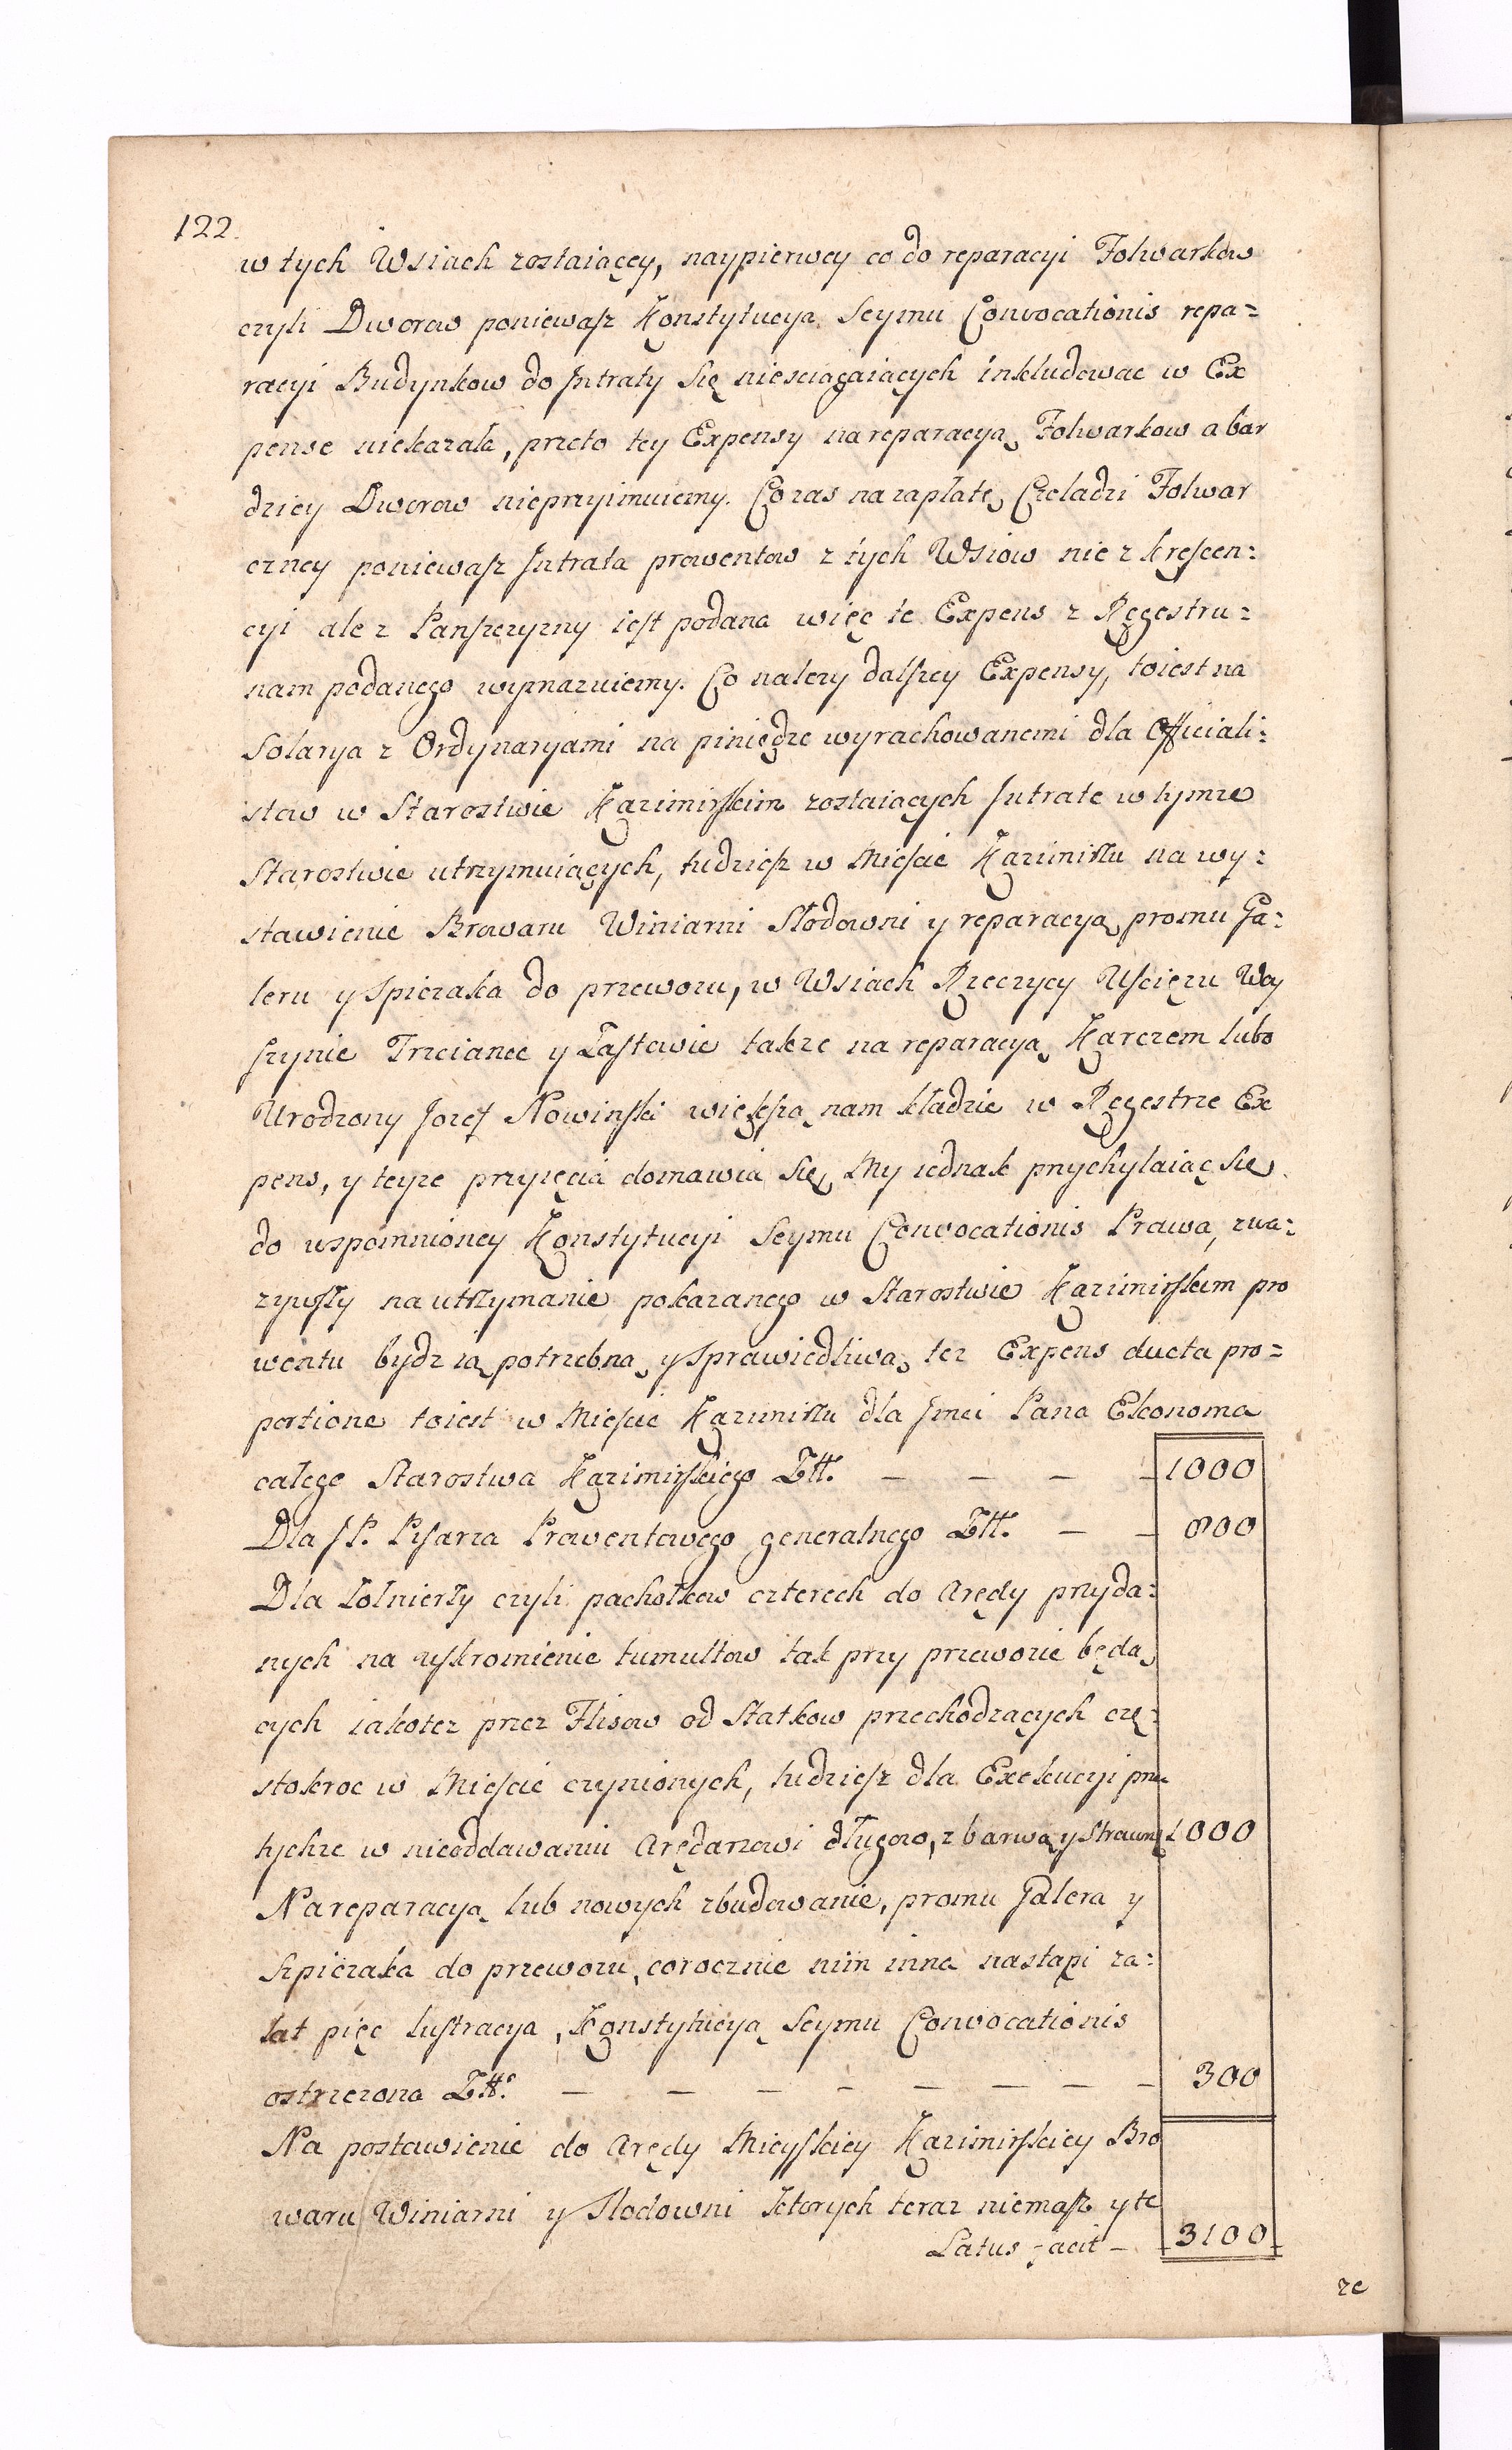 122.
w tych Wsiach zostaiącey, naypierwey co do reparacyi Folwarkow
czyli Dworow poniewasz Konstytucya Seymu Convocationis repa=
racyi Budynkow do Intraty się niesciągaiących inkludowac w Ex
pense niekazała, przeto tey Expensy na reparacyą Folwarkow a bar
dziey Dworow nieprzyimuiemy. Co zas na zapłatę Czeladzi Folwar
czney poniewasz Intrata prowentow z tych Wsiow nie z krescen=
cyi ale z Panszczyzny iest podana więc te Expens z Regestru=
nam podanego wymazuiemy. Co nalezy dalszey Expensy, toiest na
Solarya z Ordynaryami na piniędze wyrachowanemi dla Officiali=
stow w Starostwie Kazimirskim zostaiących Intratę w tymze
Starostwie utrzymuiących, tudziesz w Miescie Kazimirzu na wy=
stawienie Browaru Winiarni Słodowni y reparacyą promu Ga=
leru y Spiczaka do przewozu, w Wsiach Rzeczycy Uscięzu Woy
szynie Trzciance y Zastowie takze na reparacyą Karczem lubo
Urodzony Jozef Nowinski większą nam kładzie w Regestrze Ex
pens, y teyze przyięcia domawia się, My iednak przychylaiąc się
do wspomnioney Konstytucyi Seymu Convocationis Prawa, zwa=
zywszy na utrzymanie pokazanego w Starostwie Kazimirskim pro
wentu bydz ią potrzebną y sprawiedliwą tez Expens ducta pro=
portione toiest w Miescie Kazimirzu dla Jmci Pana Ekonoma
całego Starostwa Kazimirskiego Złł. — — — — 1000
Dla JP. Pisarza Prowentowego generalnego Złł. — — 800
Dla Zołnierzy czyli pachołkow czterech do Arędy przyda=
nych na uskromienie tumultow tak przy przewozie będą
cych iakotez przez Flisow od Statkow przechodzących czę=
stokroc w Miescie czynionych, tudziesz dla Exekucyi przez
tychze w nieoddawaniu Arędarzowi długow, z barwą y strawną 1000
Na reparacyą lub nowych zbudowanie, promu Galera y
Szpiczaka do przewozu, corocznie nim inna nastąpi za=
lat pięc lustracya, Konstytucyą Seymu Convocationis
ostrzezona Złł. — — — — — — — — 300
Na postawienie do Arędy Mieyskiey Kazimirskiey Bro
waru Winiarni y Słodowni ktorych teraz niemasz y te
Latus facit — 3100
ze